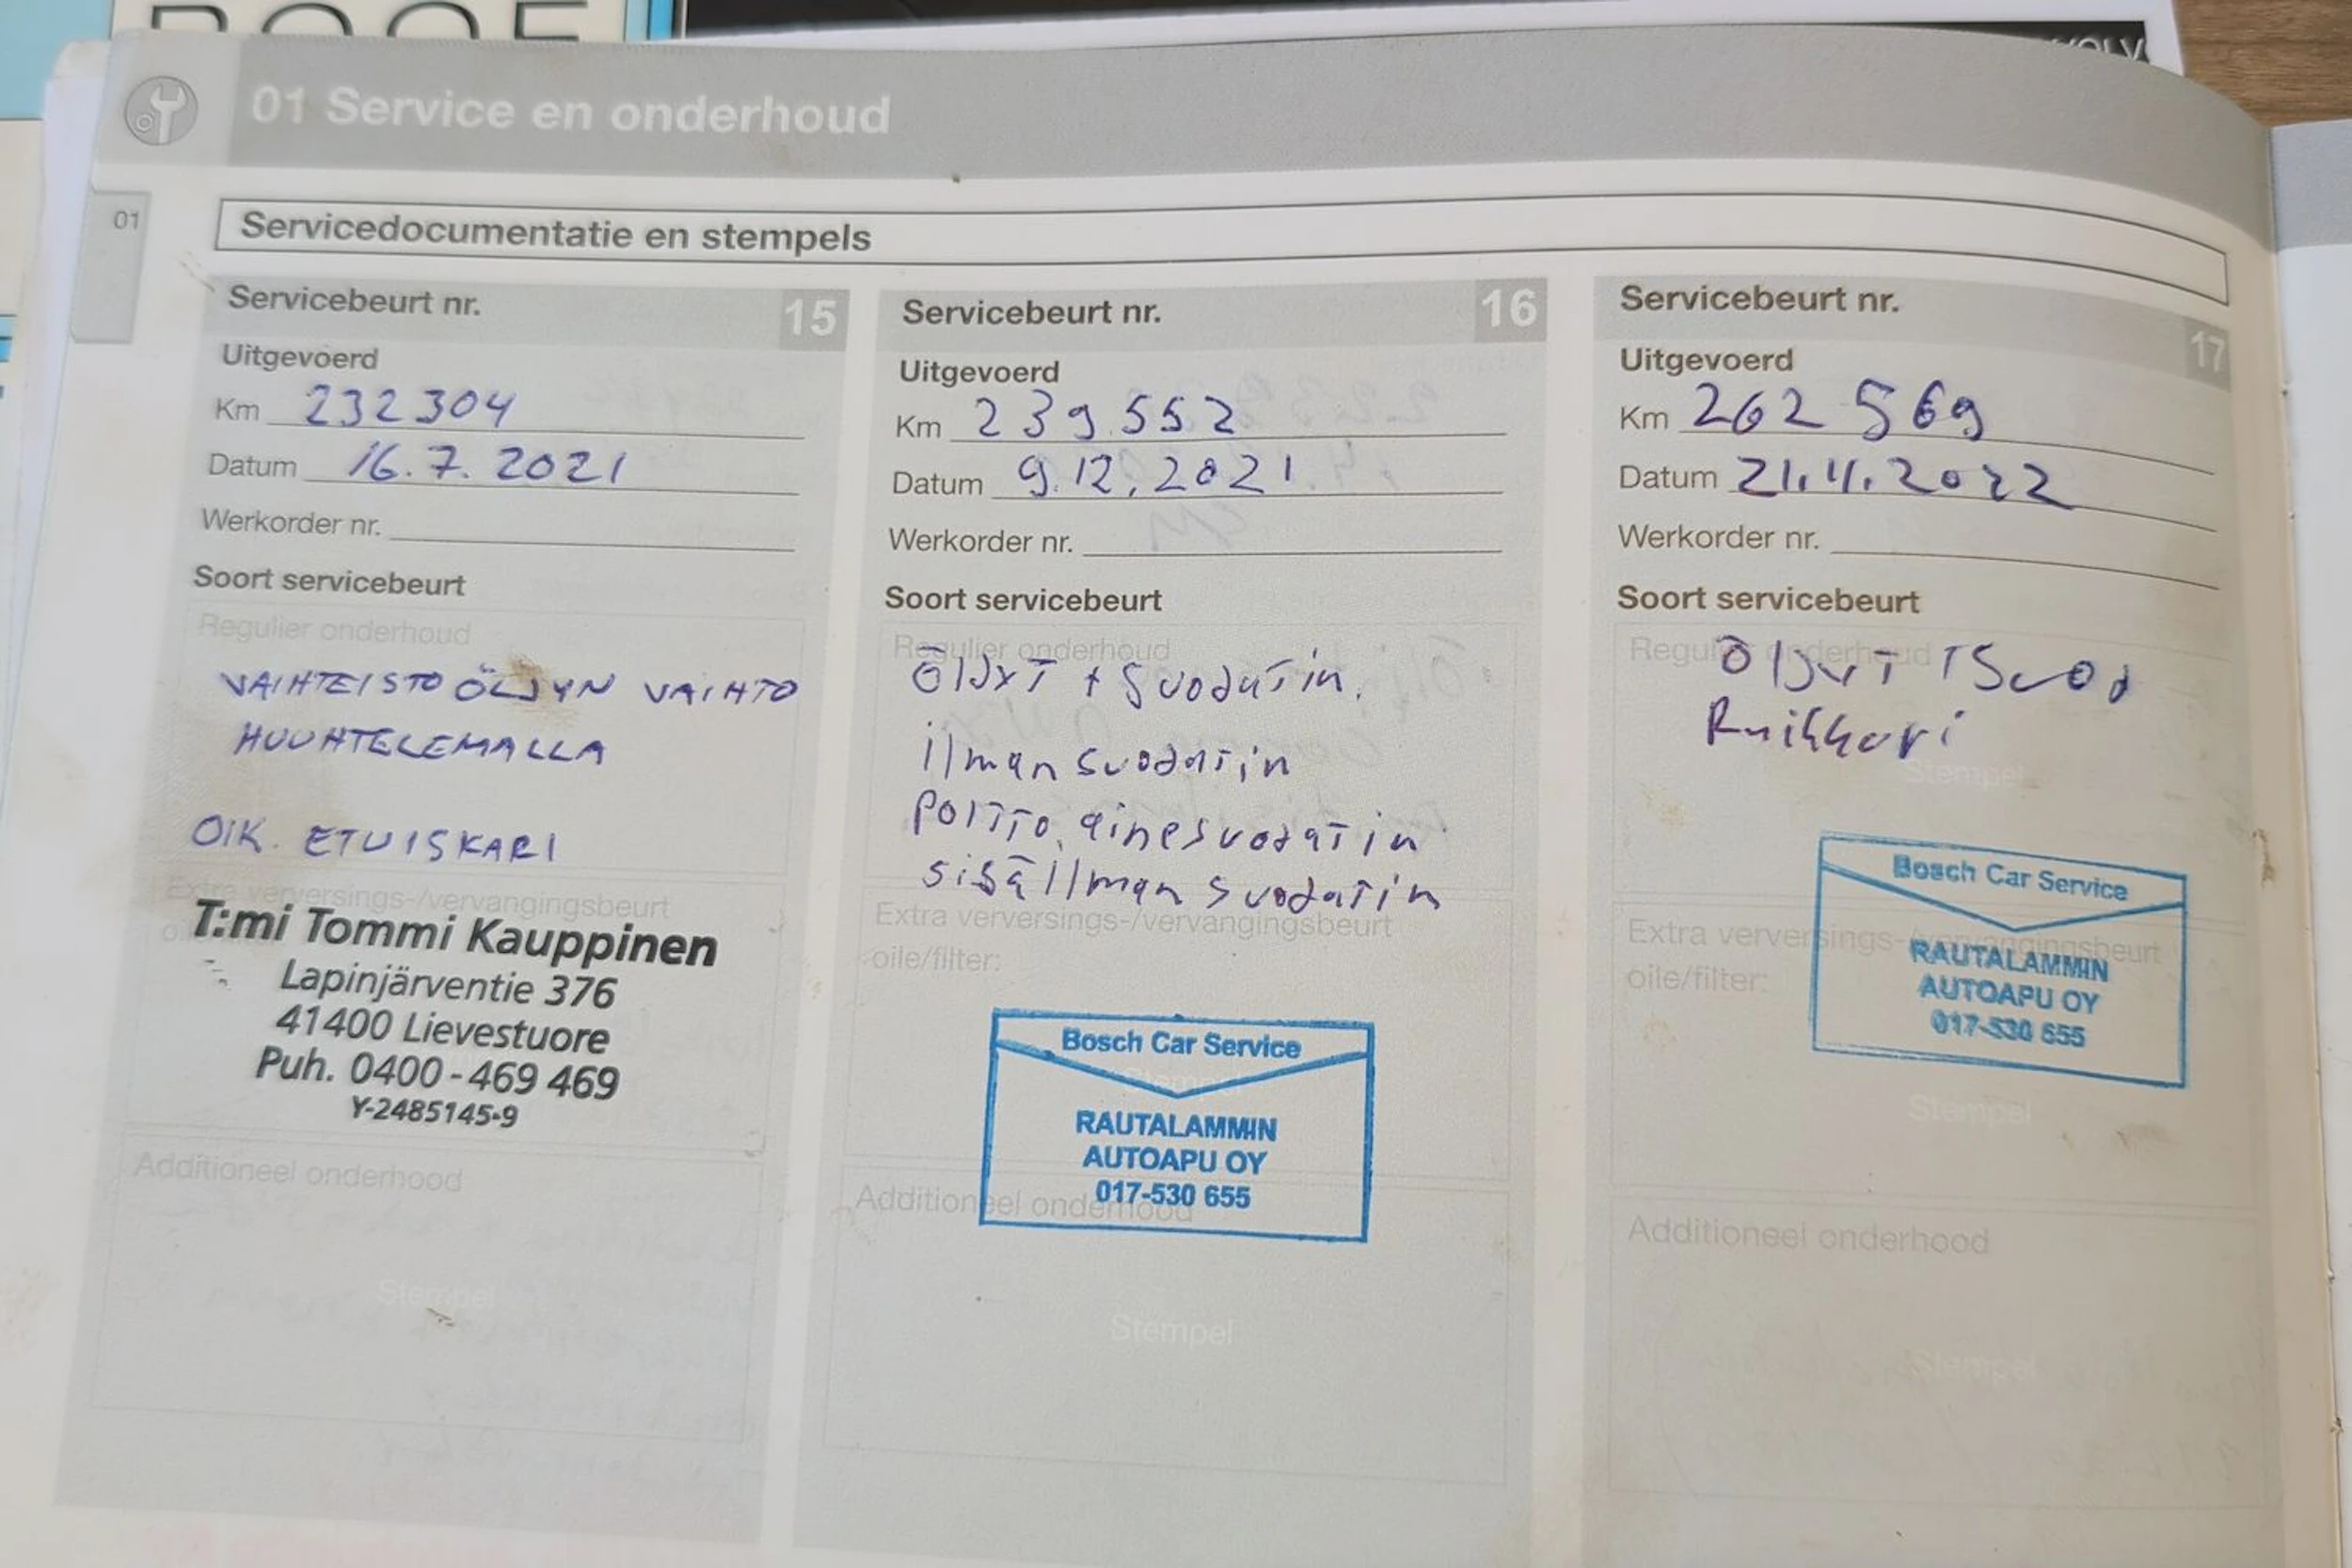 VOLV
01 Service en onderhoud
01
Servicedocumentatie en stempels
Servicebeurt nr. 15
Uitgevoerd
Km 232304
Datum 16.7.2021
Werkorder nr.
Soort servicebeurt
Regulier onderhoud
VAIHTEISTO ÖLJYN VAIHTO
HUUHTELEMALLA
OIK. ETUISKARI
Extra verversings-/vervangingsbeurt
T:mi Tommi Kauppinen
Lapinjärventie 376
41400 Lievestuore
Puh. 0400-469 469
Y-2485145-9
Additioneel onderhood
Stempel
Servicebeurt nr. 16
Uitgevoerd
Km 239552
Datum 9.12.2021
Werkorder nr.
Soort servicebeurt
Regulier onderhoud
ÖlJyT + Suodatin.
ilman suodatin
polTTo.ainesuodatin
sisäilman suodatin
Extra verversings-/vervangingsbeurt
oile/filter:
Bosch Car Service
Stempel
RAUTALAMMIN
AUTOAPU OY
017-530 655
Additioneel onderhood
Stempel
Servicebeurt nr. 17
Uitgevoerd
Km 262 569
Datum 21.11.2022
Werkorder nr.
Soort servicebeurt
Regulier onderhoud
ÖlJyT + Suod
Stempel
Bosch Car Service
Extra verversings-/vervangingsbeurt
oile/filter:
RAUTALAMMIN
AUTOAPU OY
017-530 655
Stempel
Additioneel onderhood
Stempel